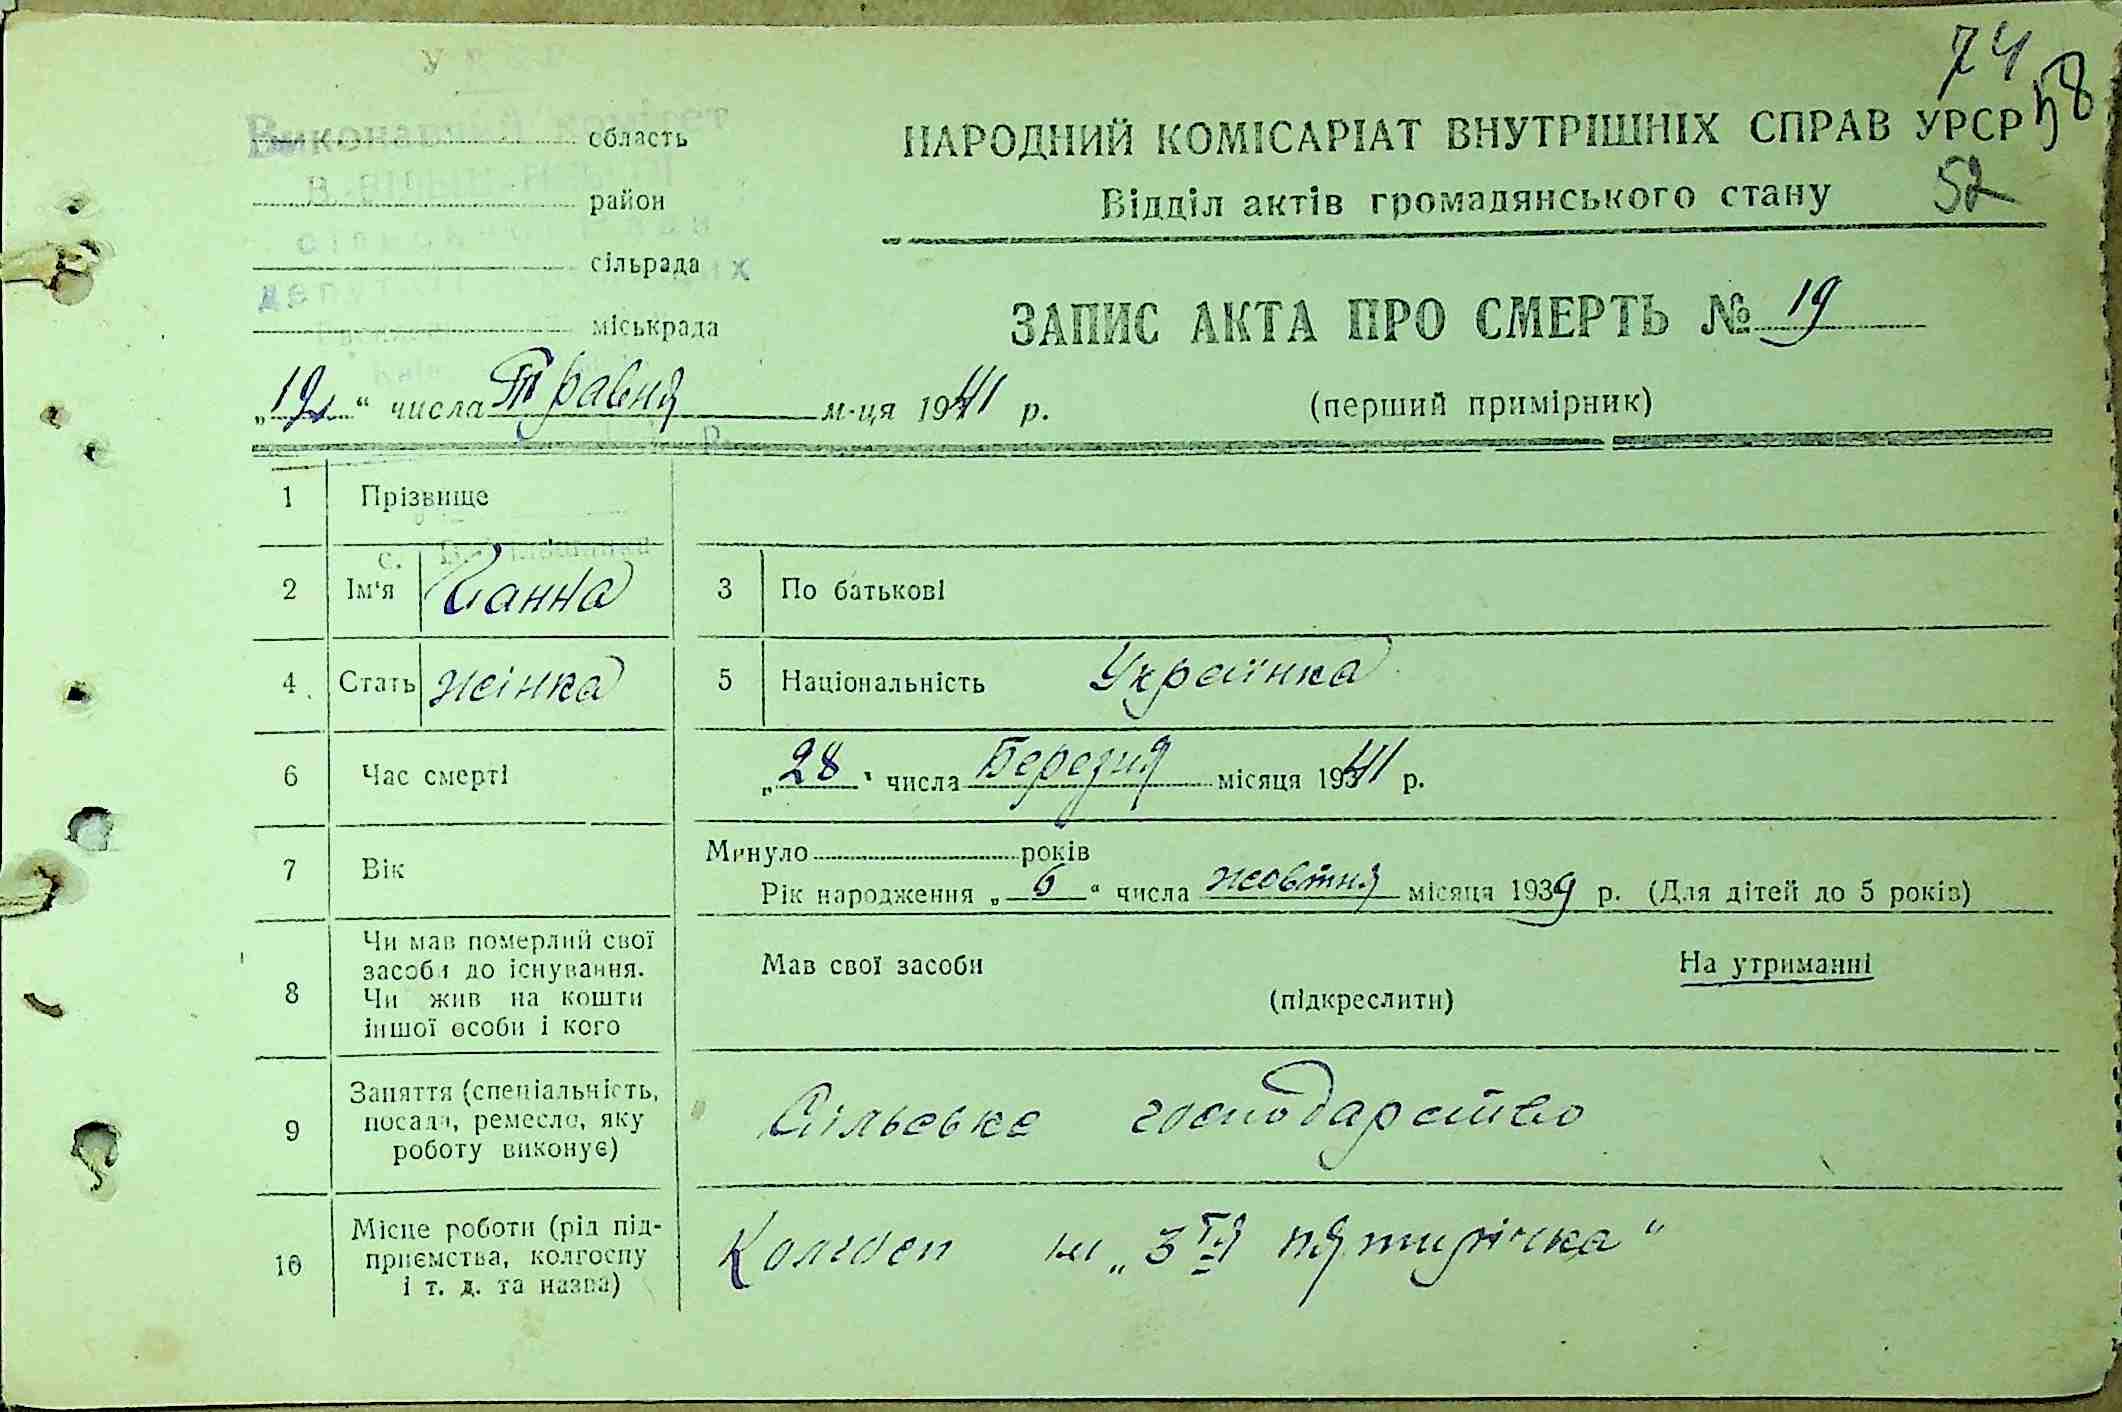 74
58
52
У Р С Р
Виконавчий комітет
область
район
сільрада
міськрада
НАРОДНИЙ КОМІСАРІАТ ВНУТРІШНІХ СПРАВ УРСР
Відділ актів громадянського стану
ЗАПИС АКТА ПРО СМЕРТЬ № 19
(перший примірник)
„19“ числа Травня м-ця 1941 р.
1 Прізвище
2 Ім'я Ганна 3 По батькові
4 Стать жінка 5 Національність Українка
6 Час смерті „28“ числа Березня місяця 1941 р.
7 Вік Минуло років
Рік народження „6“ числа жовтня місяця 1939 р. (Для дітей до 5 років)
8 Чи мав померлий свої
засоби до існування.
Чи жив на кошти
іншої особи і кого
Мав свої засоби На утриманні
(підкреслити)
9 Заняття (спеціальність,
посада, ремесло, яку
роботу виконує)
Сільське господарство
10 Місце роботи (рід під-
приємства, колгоспу
і т. д. та назва)
Колгосп ім „3тя пятирічка“